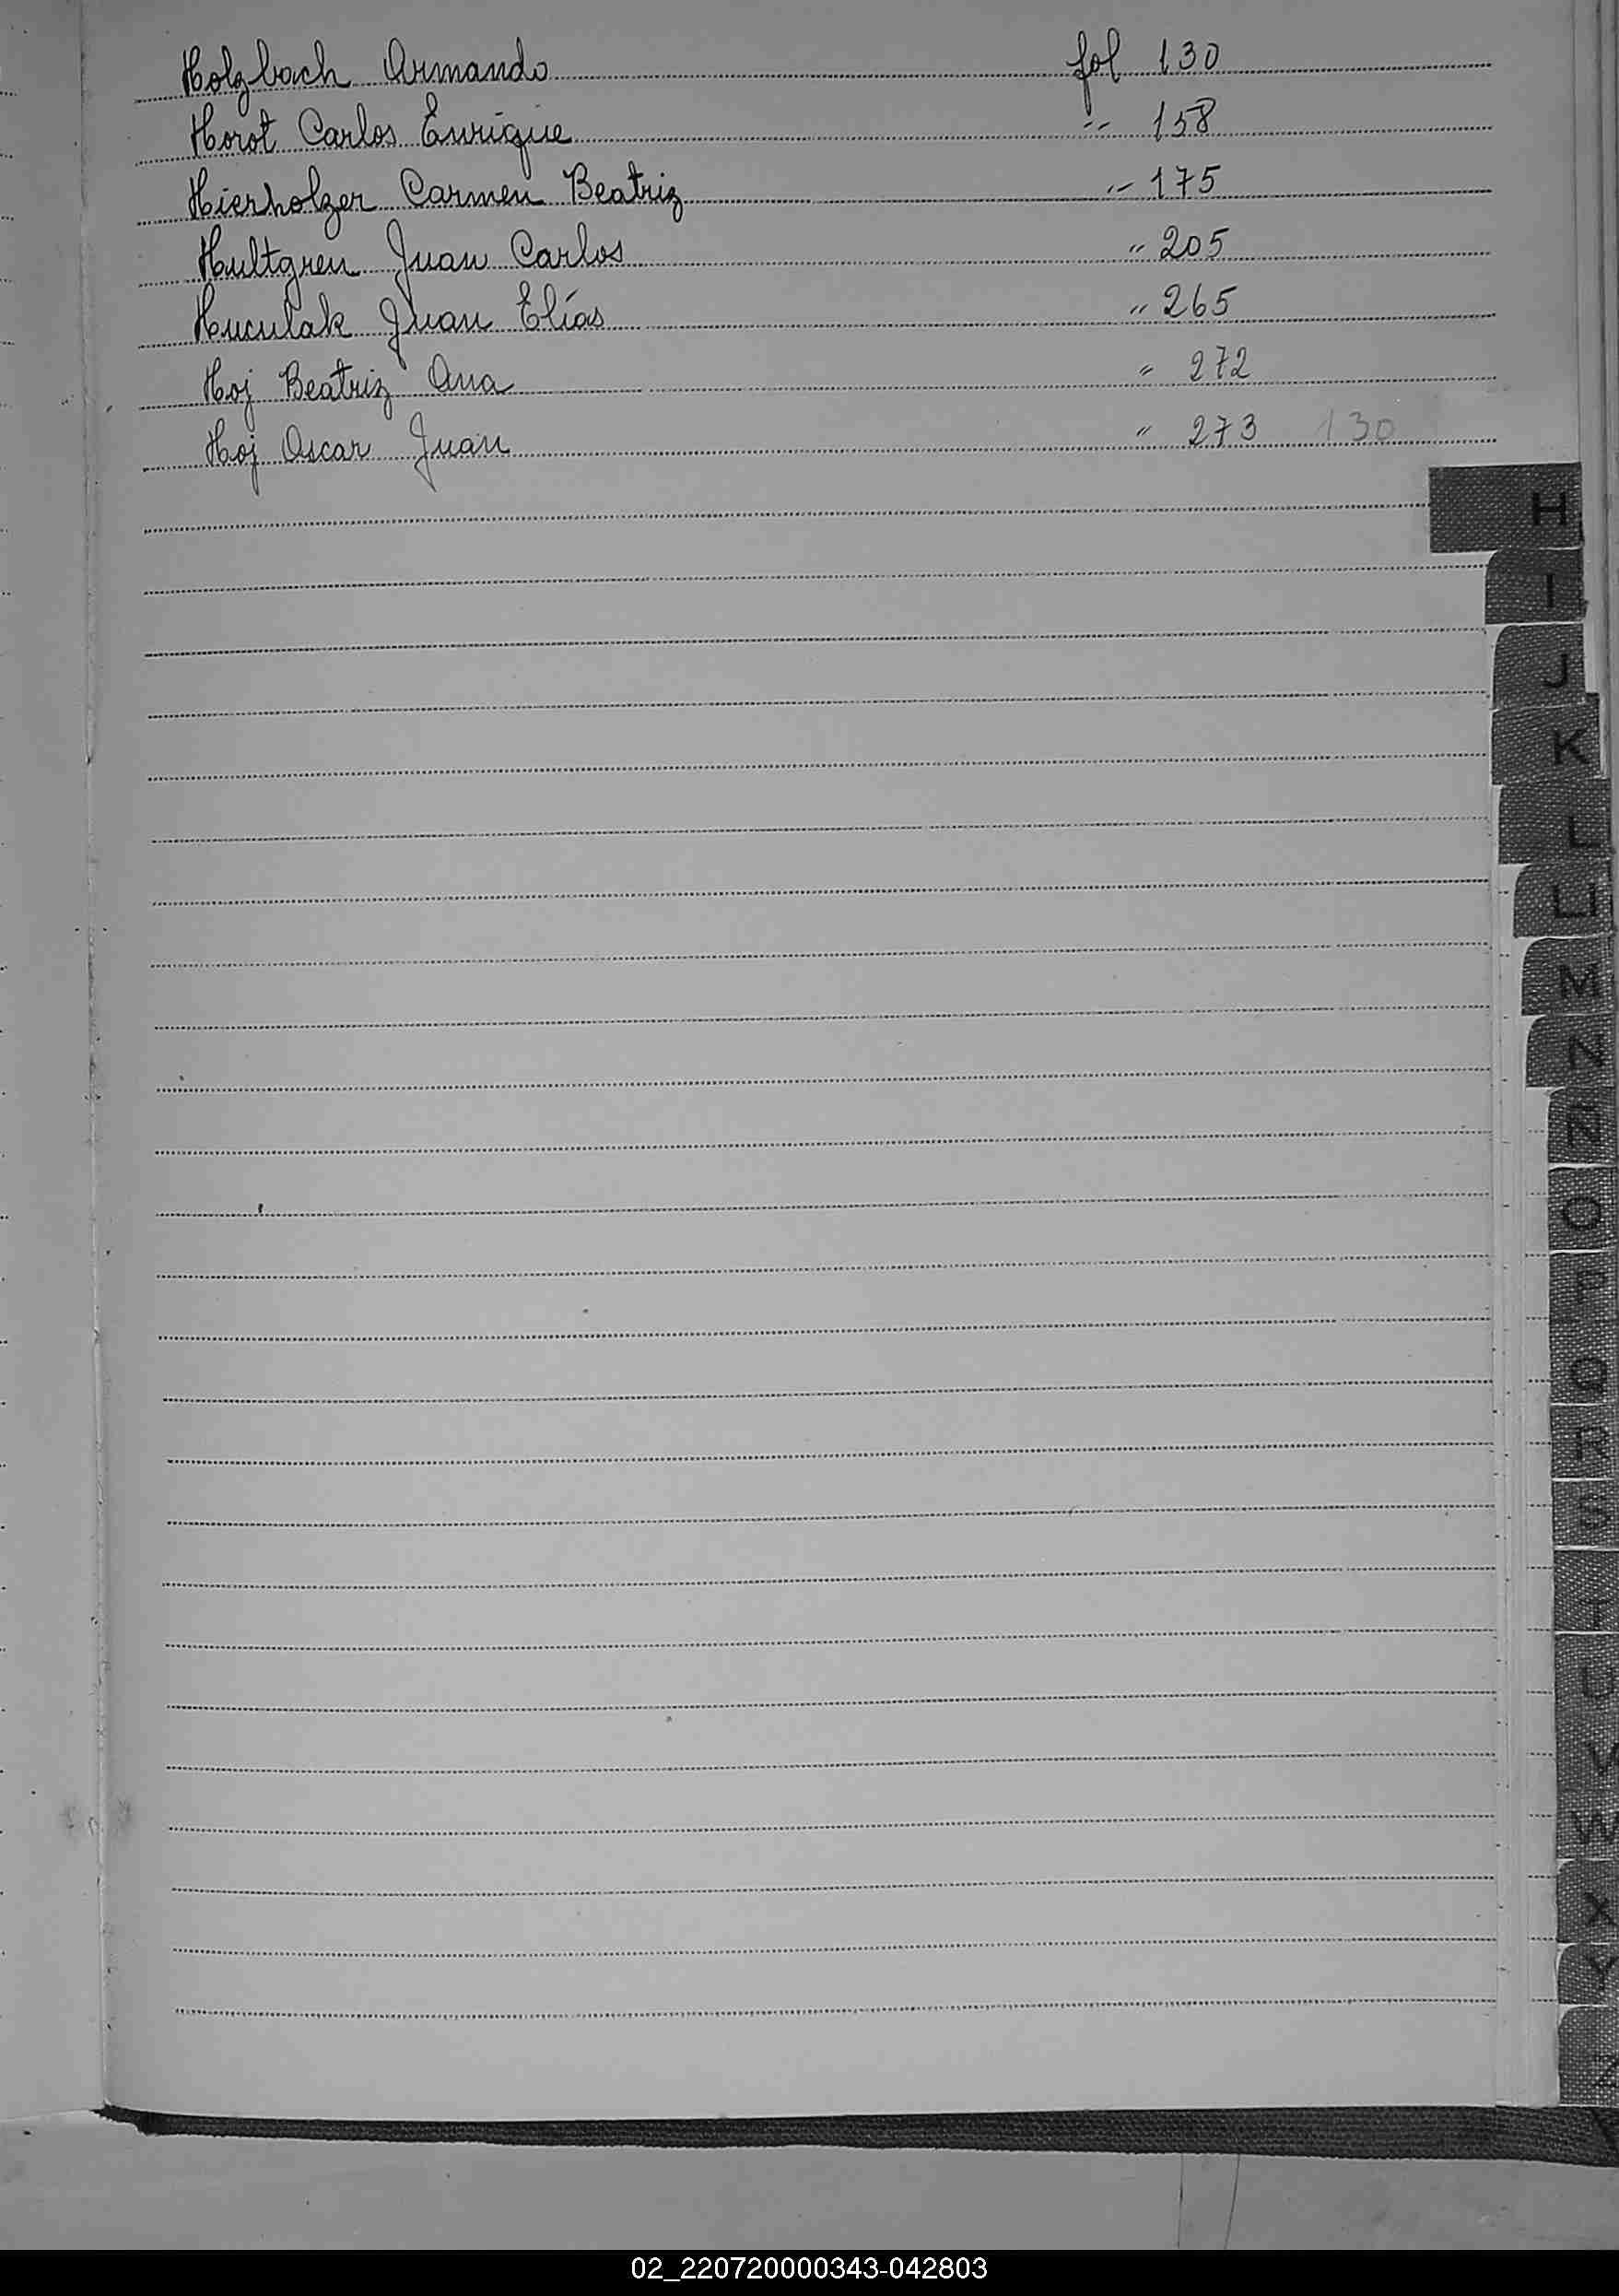 Holzbach Armando fol 130
Horot Carlos Enrique " 158
Hierholzer Carmen Beatriz " 175
Hultgren Juan Carlos " 205
Huculak Juan Elías " 265
Hoj Beatriz Ana " 272
Hoj Oscar Juan " 273 130
H
I
J
K
L
LL
M
N
Ñ
O
P
Q
R
S
T
U
V
W
X
Y
Z
02_220720000343-042803